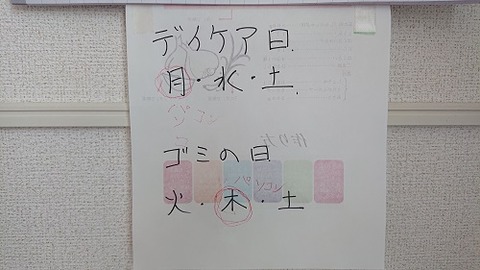 デイケア日
月・水・土
パソコン
ゴミの日
パソコン
火・木・土